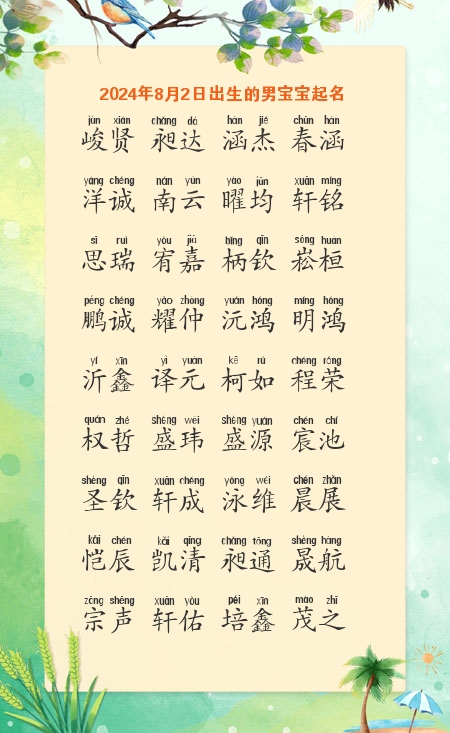 2024年8月2日出生的男宝宝起名
jùn xián chǎng dá hán jié chūn hán
峻贤 昶达 涵杰 春涵
yáng chéng nán yún yào jūn xuān míng
洋诚 南云 曜均 轩铭
sī ruì yòu jiā bǐng qīn sōng huán
思瑞 宥嘉 柄钦 崧桓
péng chéng yào zhòng yuán hóng míng hóng
鹏诚 耀仲 沅鸿 明鸿
yí xīn yì yuán kē rú chéng róng
沂鑫 译元 柯如 程荣
quán zhé shèng wěi shèng yuán chén chí
权哲 盛玮 盛源 宸池
shèng qīn xuān chéng yǒng wéi chén zhǎn
圣钦 轩成 泳维 晨展
kǎi chén kǎi qīng chǎng tōng shèng háng
恺辰 凯清 昶通 晟航
zōng shēng xuān yòu péi xīn mào zhī
宗声 轩佑 培鑫 茂之